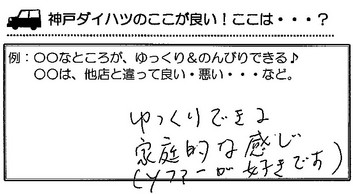 神戸ダイハツのここが良い！ここは・・・？
例：○○なところが、ゆっくり＆のんびりできる♪
○○は、他店と違って良い・悪い・・・など。
ゆっくりできる
家庭的な感じ
(ソファーが好きです)